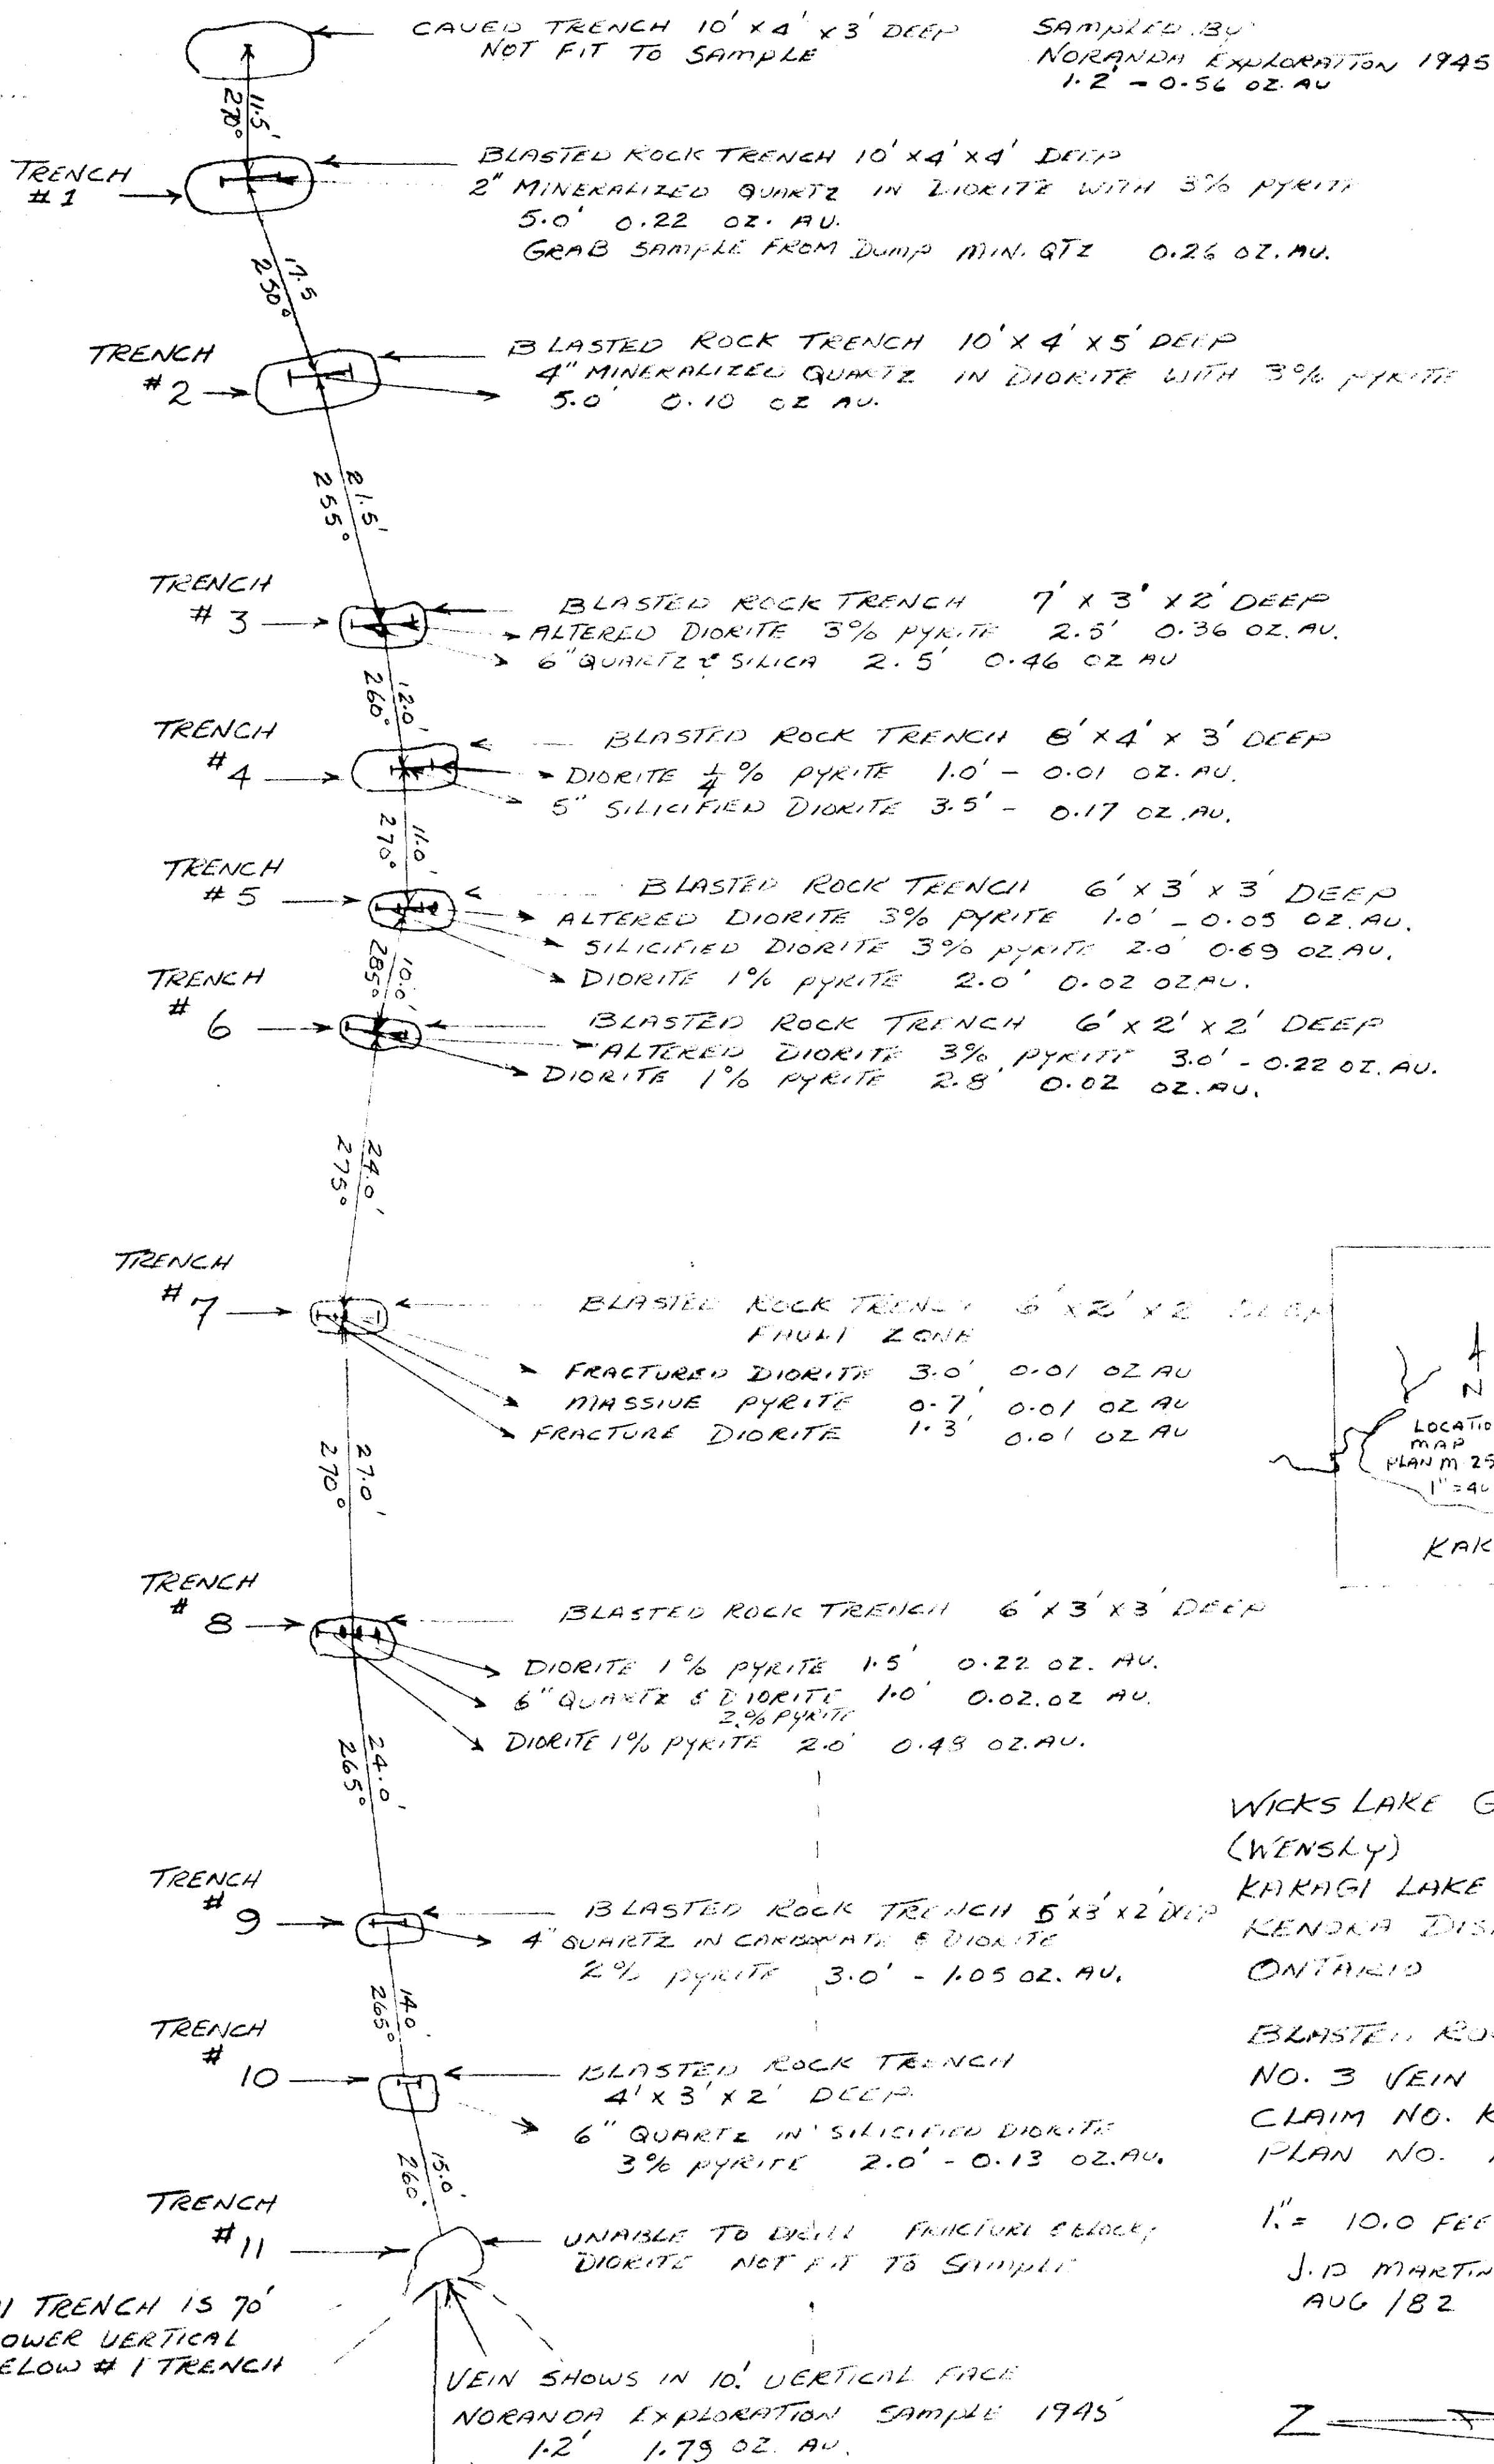 CAVED TRENCH 10' x 4' x 3' DEEP
NOT FIT TO SAMPLE
SAMPLED BY
NORANDA EXPLORATION 1945
1.2' - 0.56 OZ. AU
11.5'
270°
TRENCH
# 1
BLASTED ROCK TRENCH 10' x 4' x 4' DEEP
2" MINERALIZED QUARTZ IN DIORITE WITH 3% PYRITE
5.0' 0.22 OZ. AU.
GRAB SAMPLE FROM DUMP MIN. QTZ 0.26 OZ. AU.
17.5
250°
TRENCH
# 2
BLASTED ROCK TRENCH 10' x 4' x 5' DEEP
4" MINERALIZED QUARTZ IN DIORITE WITH 3% PYRITE
5.0' 0.10 OZ AU.
21.5'
255°
TRENCH
# 3
BLASTED ROCK TRENCH 7' x 3' x 2' DEEP
ALTERED DIORITE 3% PYRITE 2.5' 0.36 OZ. AU.
6" QUARTZ & SILICA 2.5' 0.46 OZ AU
12.0'
260°
TRENCH
# 4
BLASTED ROCK TRENCH 8' x 4' x 3' DEEP
DIORITE 1/4 % PYRITE 1.0' - 0.01 OZ. AU.
5" SILICIFIED DIORITE 3.5' - 0.17 OZ. AU.
11.0'
270°
TRENCH
# 5
BLASTED ROCK TRENCH 6' x 3' x 3' DEEP
ALTERED DIORITE 3% PYRITE 1.0' - 0.05 OZ. AU.
SILICIFIED DIORITE 3% PYRITE 2.0' 0.69 OZ AU.
DIORITE 1% PYRITE 2.0' 0.02 OZ AU.
10.0'
285°
TRENCH
# 6
BLASTED ROCK TRENCH 6' x 2' x 2' DEEP
ALTERED DIORITE 3% PYRITE 3.0' - 0.22 OZ. AU.
DIORITE 1% PYRITE 2.8' 0.02 OZ. AU.
24.0'
275°
TRENCH
# 7
BLASTED ROCK TRENCH 6' x 2' x 2' DEEP
FAULT ZONE
FRACTURED DIORITE 3.0' 0.01 OZ AU
MASSIVE PYRITE 0.7' 0.01 OZ AU
FRACTURE DIORITE 1.3' 0.01 OZ AU
N
LOCATIO
MAP
PLAN M. 25
1" = 40
KAK
27.0'
270°
TRENCH
# 8
BLASTED ROCK TRENCH 6' x 3' x 3' DEEP
DIORITE 1% PYRITE 1.5' 0.22 OZ. AU.
6" QUARTZ & DIORITE 1.0' 0.02 OZ AU.
2% PYRITE
DIORITE 1% PYRITE 2.0' 0.48 OZ. AU.
24.0'
265°
WICKS LAKE G
(WENSLY)
KAKAGI LAKE
KENORA DIS
ONTARIO
TRENCH
# 9
BLASTED ROCK TRENCH 5' x 3' x 2' DEEP
4" QUARTZ IN CARBONATE & DIORITE
2% PYRITE 3.0' - 1.05 OZ. AU.
14.0'
265°
TRENCH
# 10
BLASTED ROCK TRENCH
4' x 3' x 2' DEEP
6" QUARTZ IN SILICIFIED DIORITE
3% PYRITE 2.0' - 0.13 OZ. AU.
BLASTED RO
NO. 3 VEIN
CLAIM NO. K
PLAN NO.
15.0'
260°
TRENCH
# 11
UNABLE TO DRILL FRACTURE & BLOCKY
DIORITE NOT FIT TO SAMPLE
1" = 10.0 FEE
J.D MARTIN
AUG / 82
1 TRENCH IS 70'
OWER VERTICAL
ELOW # 1 TRENCH
VEIN SHOWS IN 10' VERTICAL FACE
NORANDA EXPLORATION SAMPLE 1945
1.2' 1.79 OZ. AU.
N